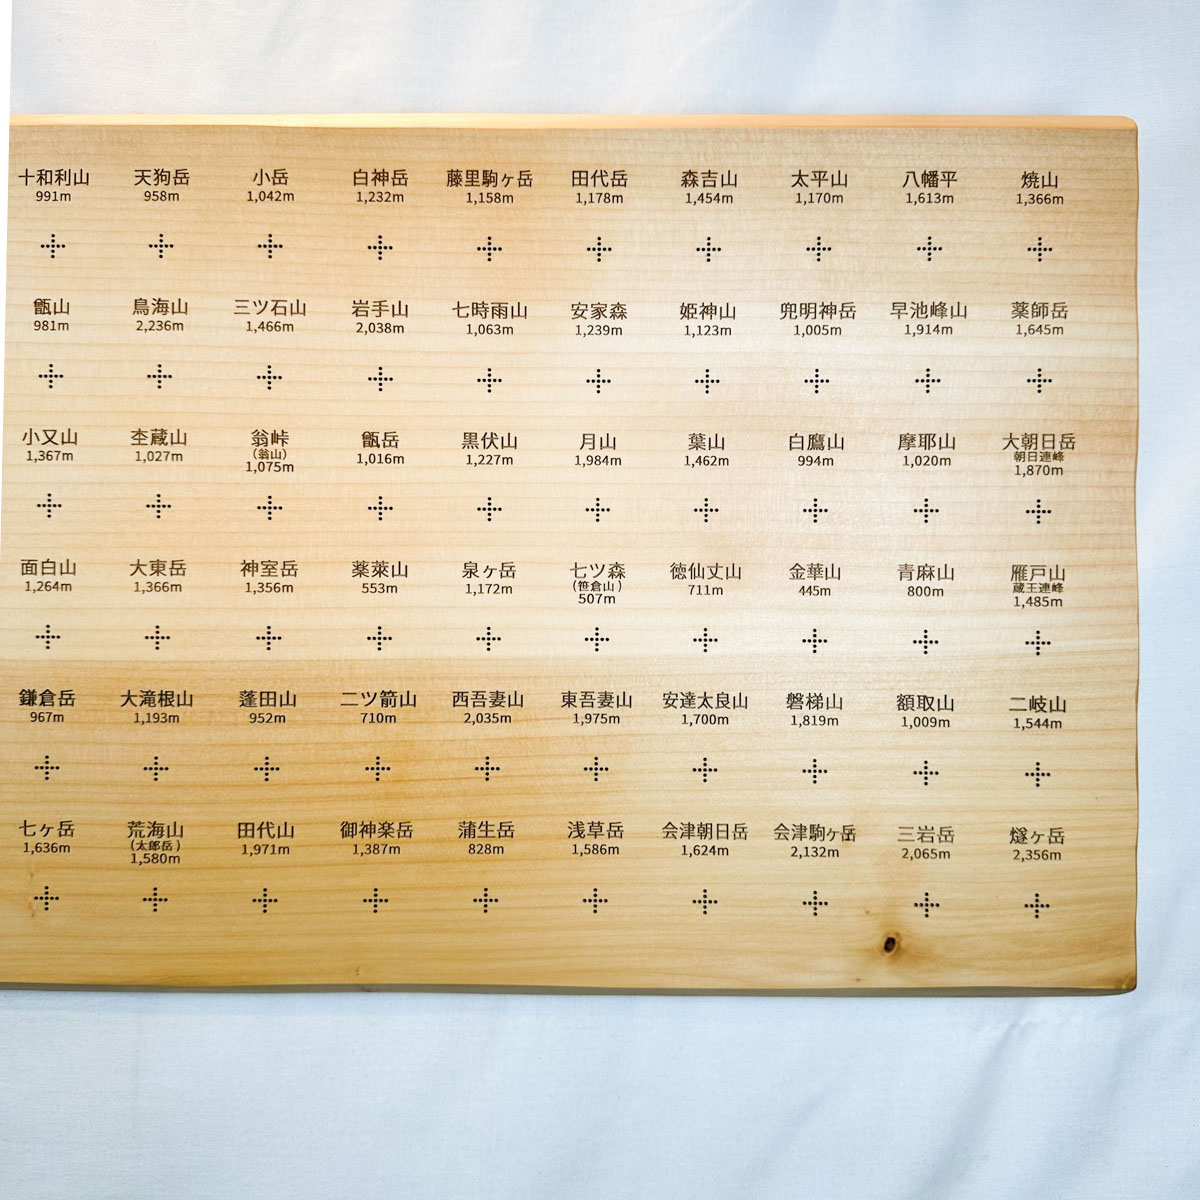 十和利山 天狗岳 小岳 白神岳 藤里駒ヶ岳 田代岳 森吉山 太平山 八幡平 焼山
991m 958m 1,042m 1,232m 1,158m 1,178m 1,454m 1,170m 1,613m 1,366m
甑山 鳥海山 三ツ石山 岩手山 七時雨山 安家森 姫神山 兜明神岳 早池峰山 薬師岳
981m 2,236m 1,466m 2,038m 1,063m 1,239m 1,123m 1,005m 1,914m 1,645m
小又山 杢蔵山 翁峠 甑岳 黒伏山 月山 葉山 白鷹山 摩耶山 大朝日岳
(翁山) 朝日連峰
1,367m 1,027m 1,075m 1,016m 1,227m 1,984m 1,462m 994m 1,020m 1,870m
面白山 大東岳 神室岳 薬萊山 泉ヶ岳 七ツ森 徳仙丈山 金華山 青麻山 雁戸山
(笹倉山) 蔵王連峰
1,264m 1,366m 1,356m 553m 1,172m 507m 711m 445m 800m 1,485m
鎌倉岳 大滝根山 蓬田山 二ツ箭山 西吾妻山 東吾妻山 安達太良山 磐梯山 額取山 二岐山
967m 1,193m 952m 710m 2,035m 1,975m 1,700m 1,819m 1,009m 1,544m
七ヶ岳 荒海山 田代山 御神楽岳 蒲生岳 浅草岳 会津朝日岳 会津駒ヶ岳 三岩岳 燧ヶ岳
(太郎岳)
1,636m 1,580m 1,971m 1,387m 828m 1,586m 1,624m 2,132m 2,065m 2,356m